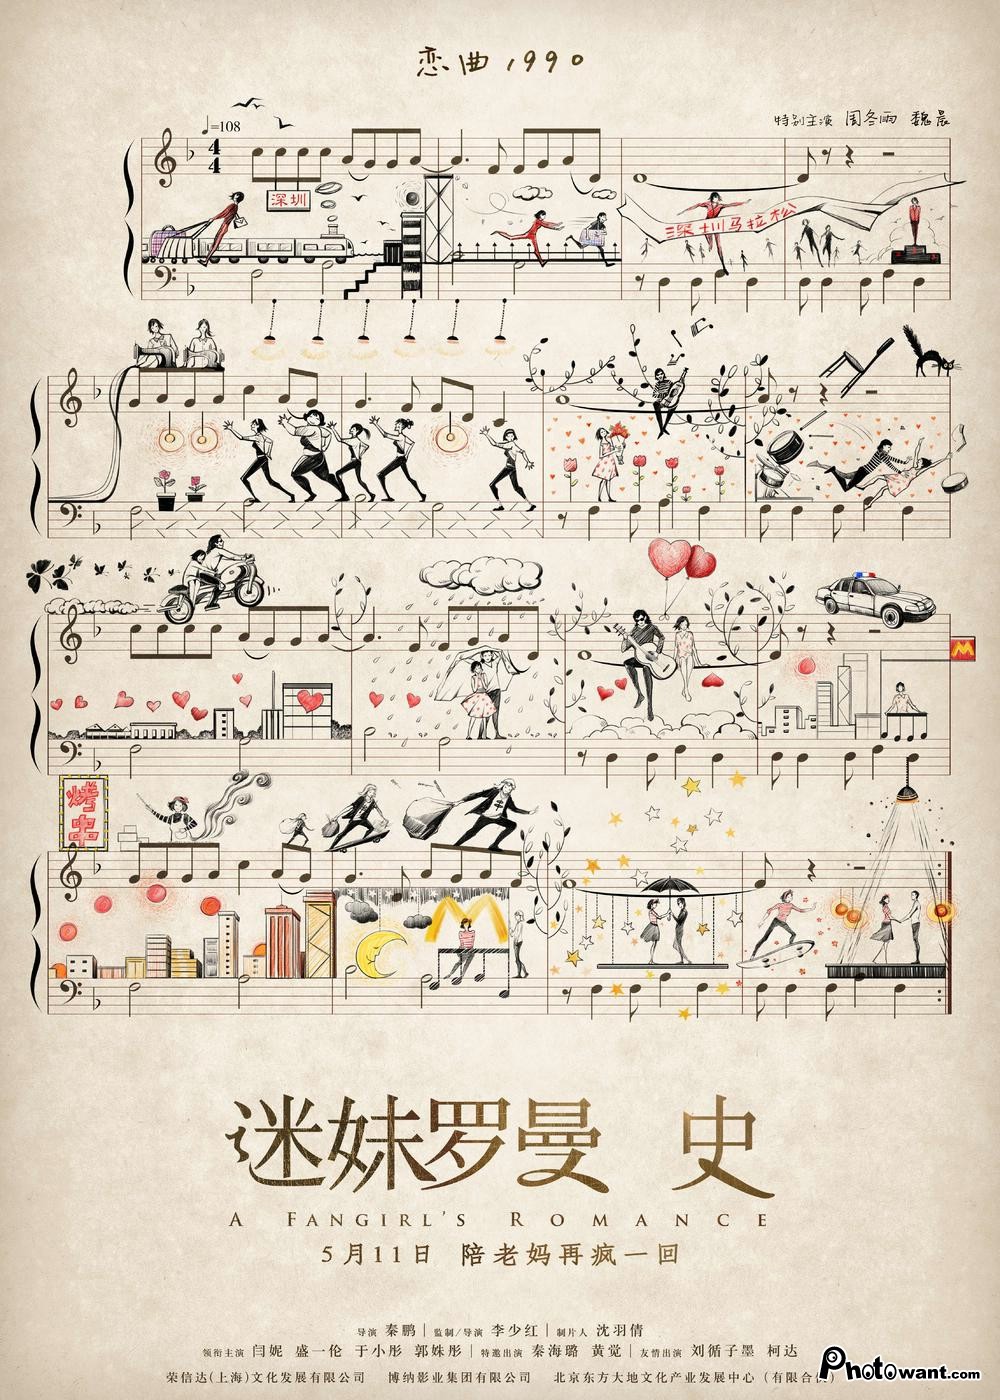 恋曲1990
特别主演 周冬雨 魏晨
=108
4
4
深圳
深圳马拉松
M
烤串
M
迷妹罗曼 史
A FANGIRL'S ROMANCE
5月11日 陪老妈再疯一回
导演 秦鹏｜监制/导演 李少红｜制片人 沈羽倩
领衔主演 闫妮 盛一伦 于小彤 郭姝彤｜特邀出演 秦海璐 黄觉｜友情出演 刘循子墨 柯达
荣信达(上海)文化发展有限公司 博纳影业集团有限公司 北京东方大地文化产业发展中心（有限合伙）
Photowant.com